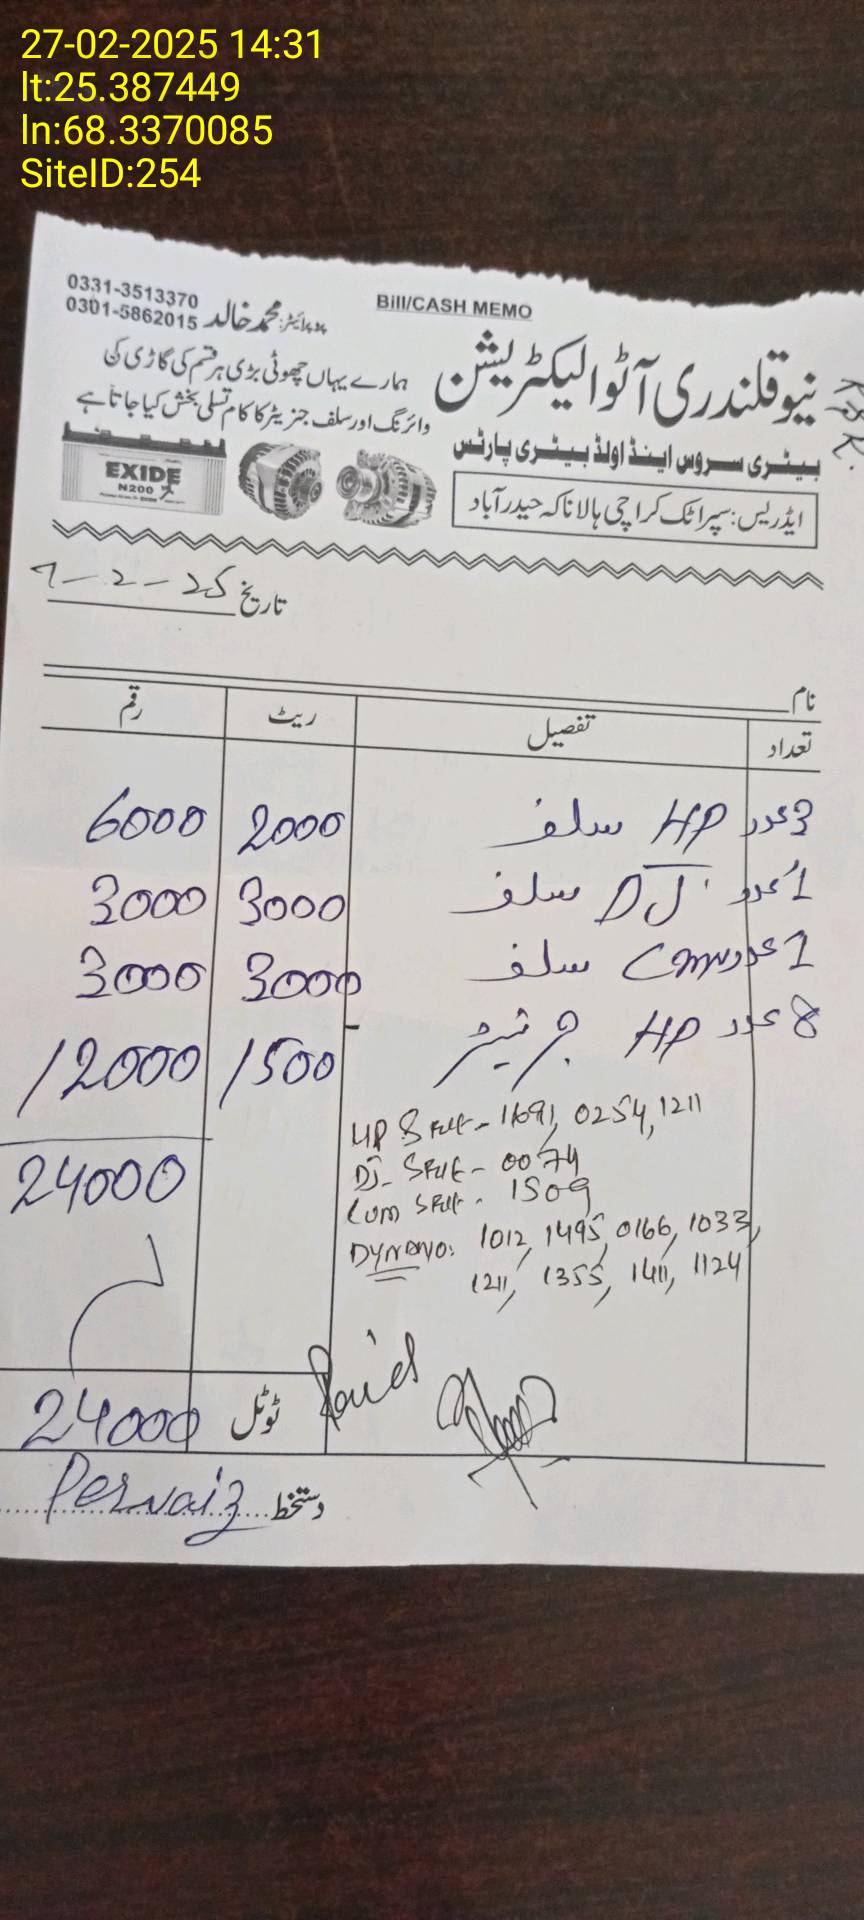 27-02-2025 14:31
lt:25.387449
ln:68.3370085
SiteID:254
Bill/CASH MEMO
0331-3513370
0301-5862015
پروپرائیٹر: محمد خالد
نیو قلندری آٹو الیکٹریشن
ہمارے یہاں چھوٹی بڑی ہر قسم کی گاڑی کی
وائرنگ اور سلف جنریٹر کا کام تسلی بخش کیا جاتا ہے
بیٹری سروس اینڈ اولڈ بیٹری پارٹس
EXIDE
N200
ایڈریس: سپرا ٹک کراچی ہالا ناکہ حیدرآباد
تاریخ 7-2-25
نام
تعداد تفصیل ریٹ رقم
3 عدد HP سلف 2000 6000
1 عدد DJ سلف 3000 3000
1 عدد Cmw سلف 3000 3000
8 عدد HP جرنیٹر 1500 12000
HP Self - 1691, 0254, 1211
24000
DJ - Self - 0074
Cum Self - 1509
DYNAMO: 1012, 1495, 0166, 1033,
1211, 1355, 1411, 1124
ٹوٹل 24000
دستخط Pervaiz